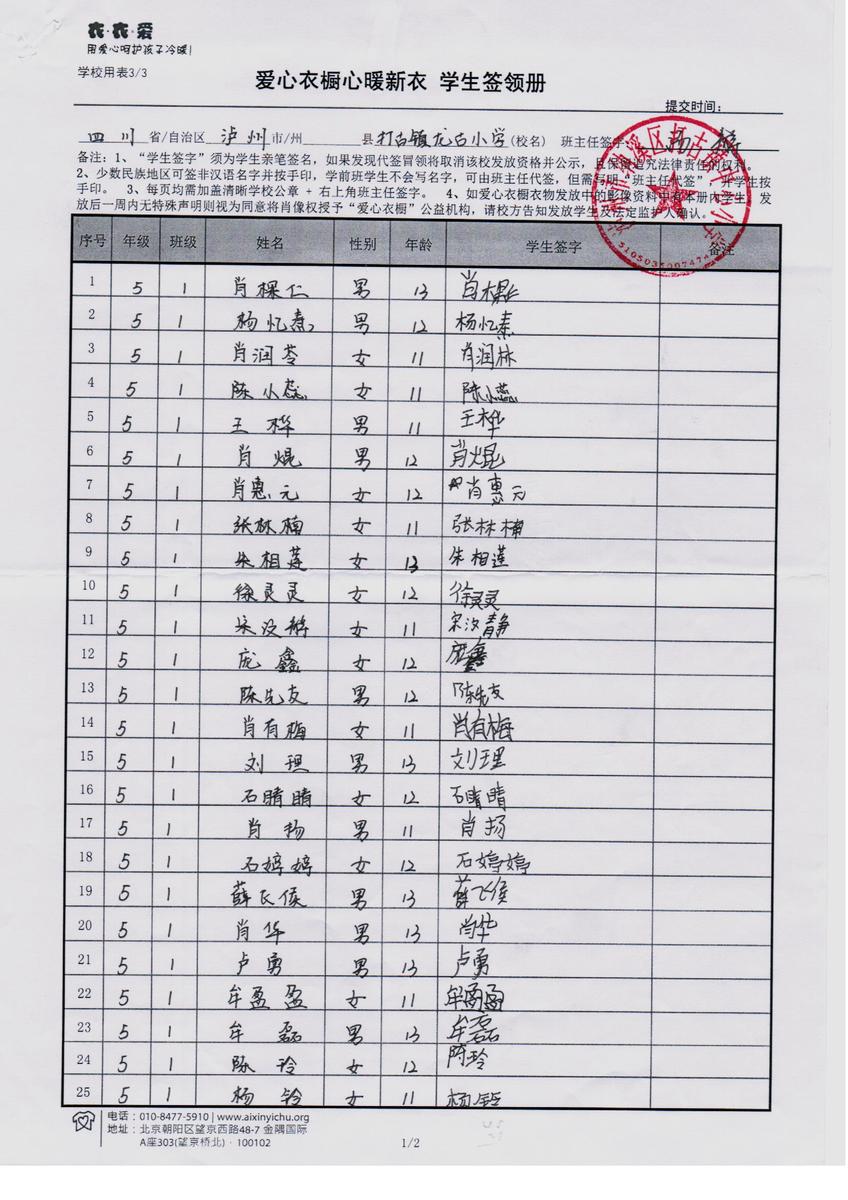 衣·衣·爱
用爱心呵护孩子冷暖!
学校用表3/3
爱心衣橱心暖新衣 学生签领册
提交时间:
四川 省/自治区 泸州 市/州 县 打古镇龙古小学(校名) 班主任签字:
备注:1、“学生签字”须为学生亲笔签名,如果发现代签冒领将取消该校发放资格并公示,且保留追究法律责任的权利。
2、少数民族地区可签非汉语名字并按手印,学前班学生不会写名字,可由班主任代签,但需写明“班主任代签”,并学生按
手印。 3、每页均需加盖清晰学校公章 + 右上角班主任签字。 4、如爱心衣橱衣物发放中的影像资料中有本册内学生,发
放后一周内无特殊声明则视为同意将肖像权授予“爱心衣橱”公益机构,请校方告知发放学生及法定监护人确认。
5105035007474
序号 年级 班级 姓名 性别 年龄 学生签字 备注
1 5 1 肖棵仁 男 13 肖棵仁
2 5 1 杨忆熹 男 12 杨忆熹
3 5 1 肖润苓 女 11 肖润林
4 5 1 陈小蕊 女 11 陈小蕊
5 5 1 王桦 男 11 王桦
6 5 1 肖焜 男 12 肖焜
7 5 1 肖惠元 女 12 肖惠元
8 5 1 张林楠 女 11 张林楠
9 5 1 朱相莲 女 13 朱相莲
10 5 1 徐灵灵 女 12 徐灵灵
11 5 1 宋汝静 女 11 宋汝静
12 5 1 庞鑫 女 12 庞鑫
13 5 1 陈先友 男 12 陈先友
14 5 1 肖有梅 女 11 肖有梅
15 5 1 刘理 男 13 刘理
16 5 1 石晴晴 女 12 石晴晴
17 5 1 肖扬 男 11 肖扬
18 5 1 石婷婷 女 12 石婷婷
19 5 1 薛飞侯 男 13 薛飞侯
20 5 1 肖华 男 13 肖华
21 5 1 卢勇 男 13 卢勇
22 5 1 牟盈盈 女 11 牟
23 5 1 牟磊 男 13 牟磊
24 5 1 陈玲 女 12 陈玲
25 5 1 杨铃 女 11 杨
电话:010-8477-5910 | www.aixinyichu.org
地址:北京朝阳区望京西路48-7 金隅国际
A座303(望京桥北)·100102
1/2